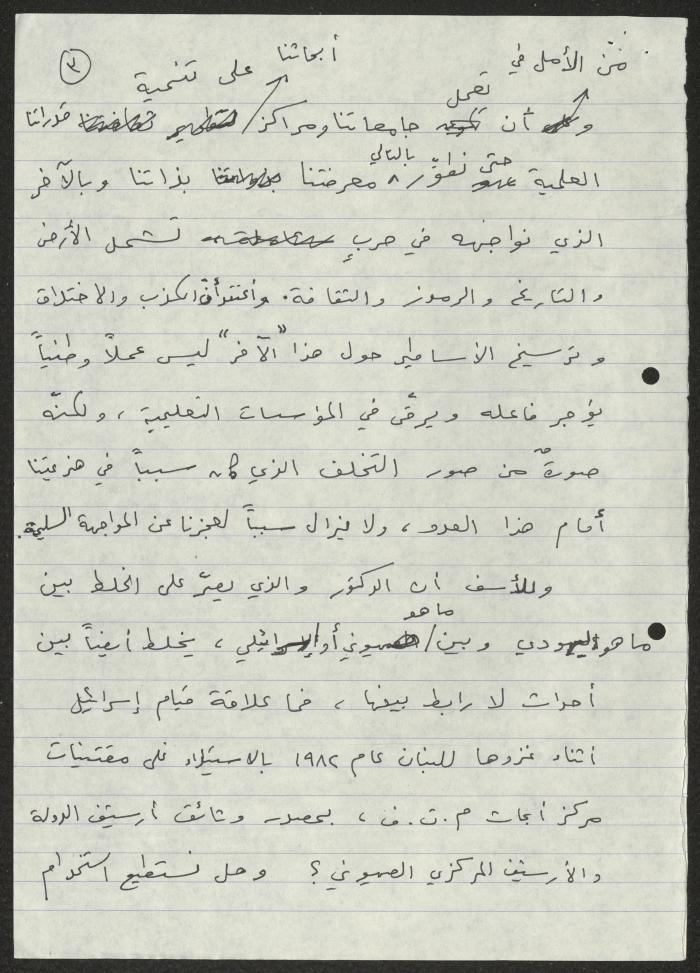 ٣
من الأمل في
أبحاثنا على تنمية
أن تعمل جامعاتنا ومراكز قدراتنا
العلمية حتى نطوّر بالتالي معرفتنا بذاتنا وبالآخر
الذي نواجهه في حربٍ تشمل الأرض
والتاريخ والرموز والثقافة. وأعتقد أنّ الكذب والاختلاق
وترسيخ الأساطير حول هذا "الآخر" ليس عملاً وطنياً
يؤجر فاعله ويرقّى في المؤسسات التعليمية، ولكنّه
صورةٌ من صور التخلف الذي كان سبباً في هزيمتنا
أمام هذا العدو، ولا يزال سبباً لعجزنا عن المواجهة السليمة.
وللأسف أن الدكتور والذي يصرّ على الخلط بين
ما هو يهودي وبين ما هو صهيوني أو إسرائيلي، يخلط أيضاً بين
أحداث لا رابط بينها، فما علاقة قيام إسرائيل
أثناء غزوها للبنان عام ١٩٨٢ بالاستيلاء على مقتنيات
مركز أبحاث م.ت.ف، بمصدر وثائق أرشيف الدولة
والأرشيف المركزي الصهيوني؟ وهل نستطيع استخدام